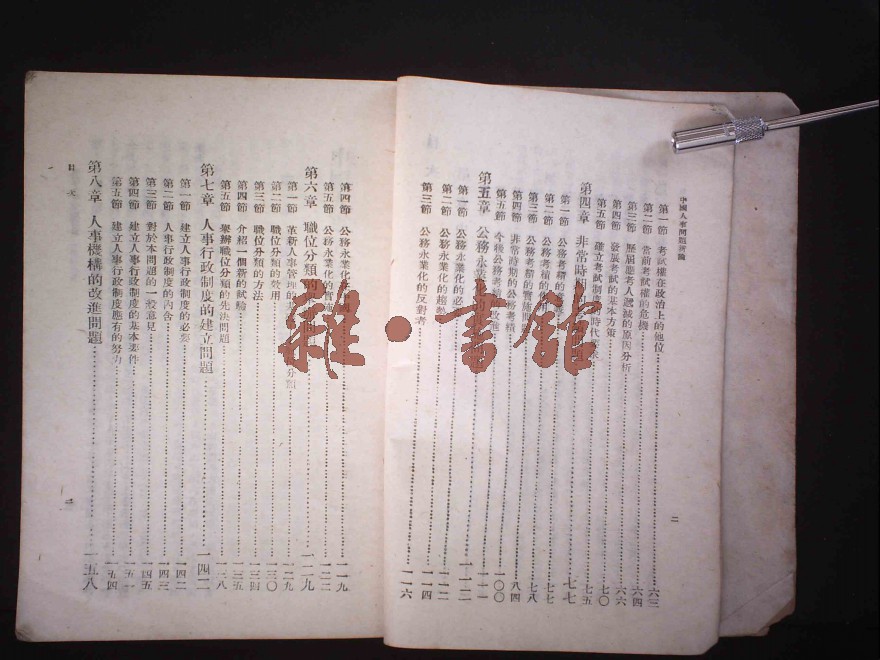 中國人事問題新論
第一節 考試權在政治上的地位 六三
第二節 當前考試權的危機 六四
第三節 歷屆應考人遞減的原因分析 六六
第四節 發展考試的基本方策 七〇
第五節 確立考試制度 時代 七五
第四章 非常時 問題 七七
第一節 公務考績的 七七
第二節 公務考績的 七八
第三節 公務考績的實施 八四
第四節 非常時期的公務考績
第五節 今後公務考績 改進 一〇〇
第五章 公務永業 一一一
第一節 公務永業化的必 一一二
第二節 公務永業化的趨勢 一一四
第三節 公務永業化的反對者 一一六
二
第四節 公務永業化的 一一九
第五節 公務永業化的實施 一二二
第六章 職位分類的 問 一二九
第一節 革新人事管理的 分類 一二九
第二節 職位分類的效用 一三〇
第三節 職位分類的方法 一三四
第四節 介紹一個新的試驗 一三五
第五節 舉辦職位分類的先決問題 一三八
第七章 人事行政制度的建立問題 一四二
第一節 建立人事行政制度的必要 一四二
第二節 人事行政制度的內含 一四三
第三節 對於本問題的一般意見 一四五
第四節 建立人事行政制度的基本要件 一五一
第五節 建立人事行政制度應有的努力 一五四
第八章 人事機構的改進問題 一五八
目次
雜·書館